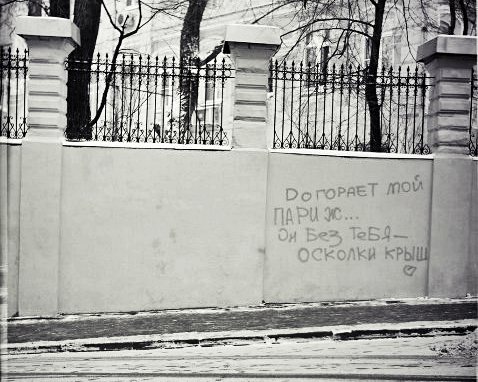 DОГОРАЕТ МОЙ
ПАРИЖ...
ОН БЕЗ ТЕБЯ—
ОСКОЛКИ КРЫШ